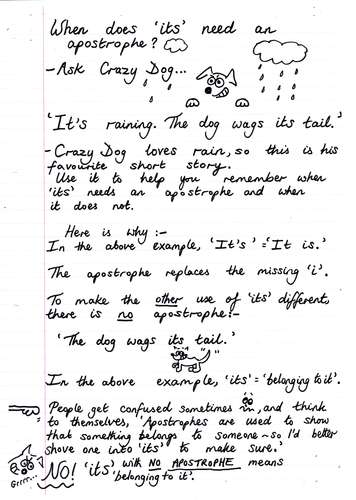 When does 'its' need an
apostrophe?
- Ask Crazy Dog...
'It's raining. The dog wags its tail.'
- Crazy Dog loves rain, so this is his
favourite short story.
Use it to help you remember when
'its' needs an apostrophe and when
it does not.
Here is why :-
In the above example, 'It's' = 'It is.'
The apostrophe replaces the missing 'i'.
To make the other use of 'its' different,
there is no apostrophe:-
'The dog wags its tail.'
In the above example, 'its' = 'belonging to it'.
People get confused sometimes, and think
to themselves, 'Apostrophes are used to show
that something belongs to someone ~ so I'd better
shove one into 'its' to make sure.'
Grrrr...
NO! 'its' with NO APOSTROPHE means
'belonging to it'.